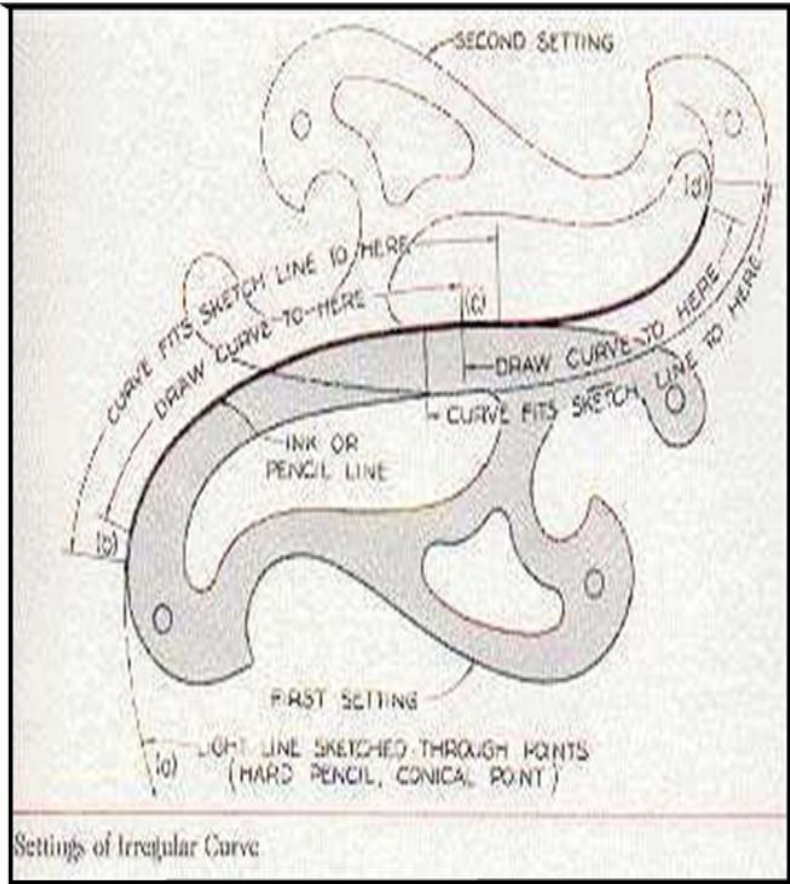 SECOND SETTING
(d)
CURVE FITS SKETCH LINE TO HERE
DRAW CURVE TO HERE
(c)
DRAW CURVE TO HERE
CURVE FITS SKETCH LINE TO HERE
INK OR
PENCIL LINE
(b)
FIRST SETTING
LIGHT LINE SKETCHED THROUGH POINTS
(HARD PENCIL, CONICAL POINT)
(a)
Settings of Irregular Curve